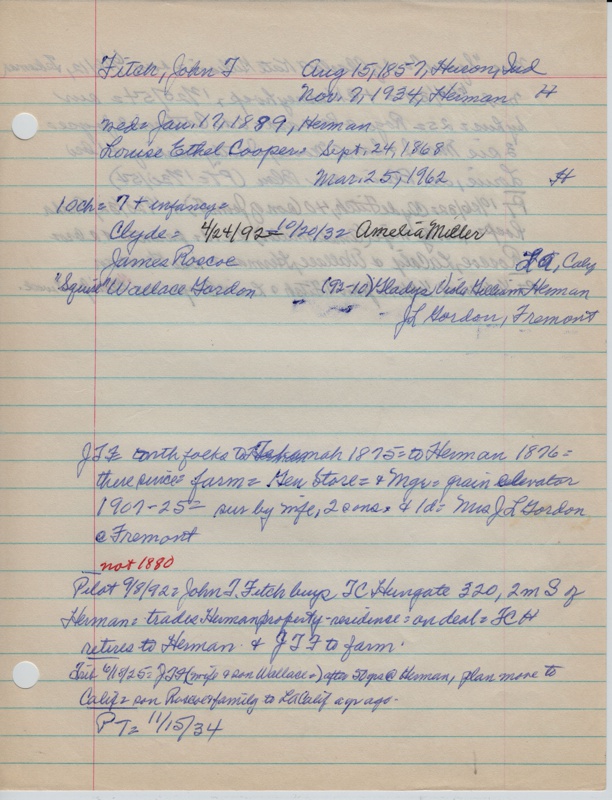 Fitch, John T    Aug 15, 1857, Huron, Ind
Nov. 7, 1934, Herman    H
wed = Jan. 17, 1889, Herman
Louise Ethel Cooper = Sept. 24, 1868
Mar. 25, 1962    H
10ch = 7 + infancy =
Clyde = 4/24/92 = 10/20/32 = Amelia Miller
James Roscoe    LA, Calif
"Squire" Wallace Gordon    (92-10) Gladys Viola Gilliam, Herman
J L Gordon, Fremont
JTF with folks to Tekamah 1875 = to Herman 1876 =
there since = farm = Gen Store = & Mgr = grain elevator
1907-25 = sur by wife, 2 sons & 1d = Mrs J L Gordon
@ Fremont
not 1880
Pilot 9/8/92 = John T. Fitch buys TC Hungate 320, 2m S of
Herman = trades Herman property - residence = on deal = TCH
retires to Herman & JTF to farm.
Trib 6/10/25 = JTF (wife & son Wallace =) after 50yrs @ Herman, plan move to
Calif = son Roscoe & family to LA Calif a yr ago -
PT = 11/15/34